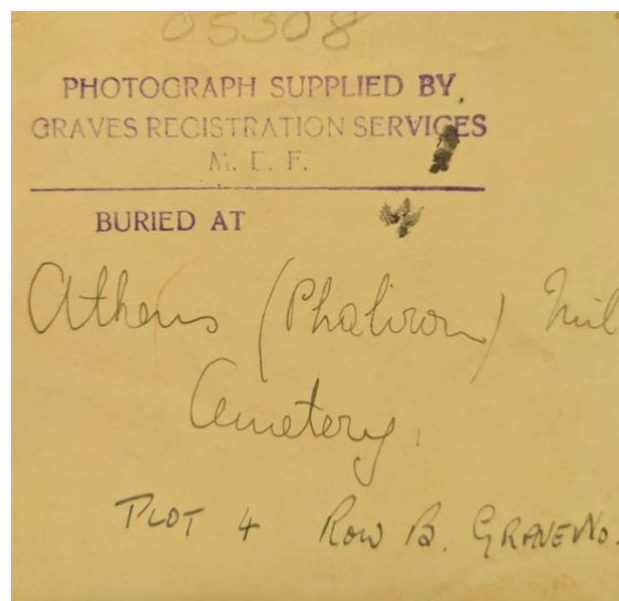 05308
PHOTOGRAPH SUPPLIED BY
GRAVES REGISTRATION SERVICES
M. E. F.
BURIED AT
Athens (Phaliron) Mil
Cemetery.
PLOT 4 ROW B. GRAVE No.